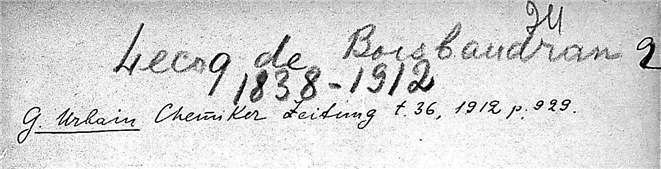 Lecoq de Boisbaudran 2
1838-1912
G. Urbain Chemiker Zeitung t. 36, 1912 p. 929.